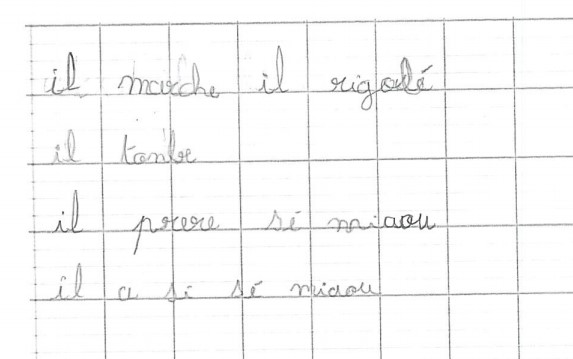 il marche il rigolé
il tonbe
il prere sé miaou
il a si sé miaou